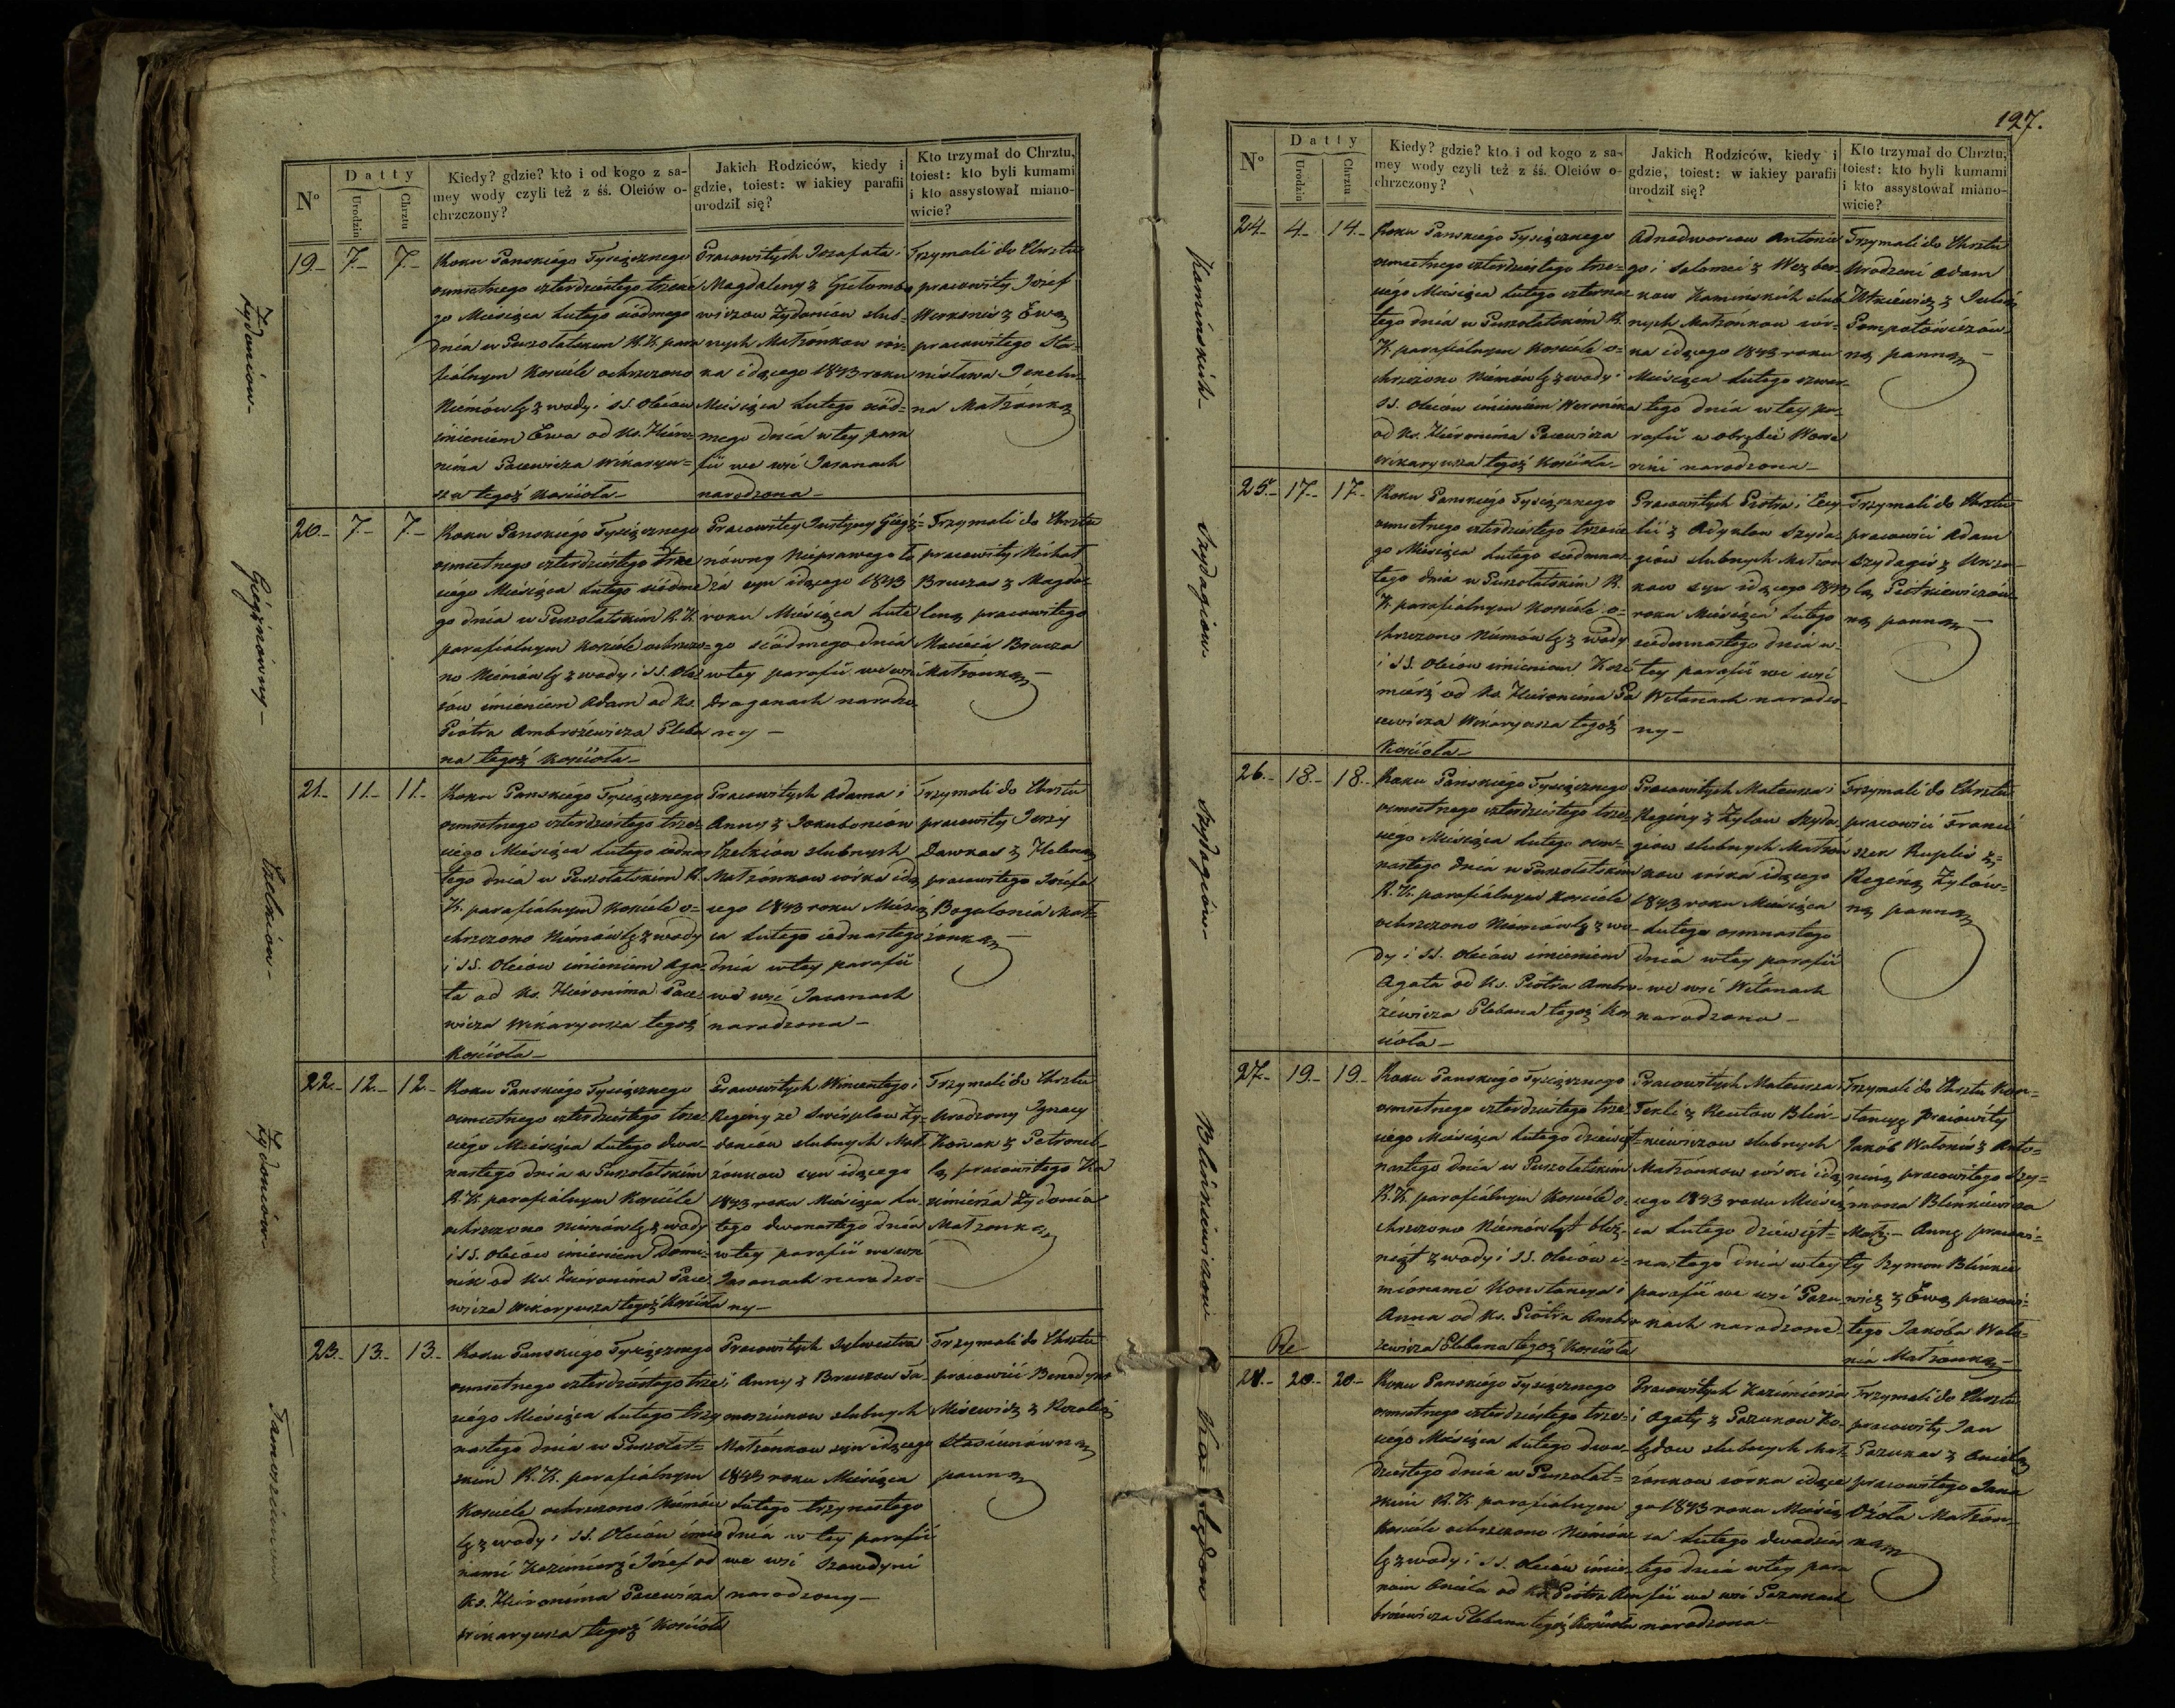 127.
Nº
Datty
Urodzin
Chrztu
Kiedy? gdzie? kto i od kogo z sa-
mey wody czyli też z śś. Oleiów o-
chrzczony?
Jakich Rodziców, kiedy i
gdzie, toiest: w iakiey parafii
urodził się?
Kto trzymał do Chrztu,
toiest: kto byli kumami
i kto assystował miano-
wicie?
19- 7.- 7.-
Żydoniow-
Roku Panskiégo Tysiącznego
osmsetnego czterdziéstego trzecié
go Miesiąca Lutego siódmego
dnia w Puszołatskim R. K. para
fiialnym Kosciéle ochrzczono
Niémówlę z wody i SS. Oleiów
imieniem Ewa od Ks. Hiéro-
nima Pacewicza Wikaryu-
sza tegoż Kościoła-
Pracowitych Jozafata i
Magdaleny z
wiczow Żydoniów slub-
nych Małżonkow cór-
ka idącego 1843 roku
Miésiąca Lutego siód-
mego dnia w tey para
fii we wsi Jasanach
narodzona-
Trzymali do Chrztu
pracowity Józef
z Ewą
pracowitego Sta-
nisława
na Małżonką
20.- 7.- 7.-
Giégżnówny-
Roku Panskiégo Tysiącznego
osmsetnego czterdziéstego trze
ciégo Miesiąca Lutego siódme
go dnia w Puszołatskim R. K.
parafiialnym Kosciéle ochrzczo-
no Niémówlę z wody i SS. Ole
iów imieniem Adam od Ks.
Piótra Ambrożéwicza Pleba
na tegoż Kościoła-
Pracowitey Justyny Giegż-
nówny Nieprawego Ło
ża syn idącego 1843
roku Miésiąca Lute
go siódmego dnia
w tey parafii we wsi
Draganach narodzo
ny-
Trzymali do Chrztu
pracowity Michał
Bruzas z Magda
leną pracowitego
Macieia Bruzza
Małżonką
21.- 11.- 11.-
Czelkiow-
Roku Panskiégo Tysiącznego
osmsetnego czterdziéstego trze-
ciégo Miésiąca Lutego iédnas
tego dnia w Puszołatskim R.
K. parafiialnym Kosciéle o-
chrzczono Niémówlę z wody
i SS. Oleiów imieniem Aga-
ta od Ks. Hiéronima Pace
wicza Wikaryusza tegoż
Kościoła-
Pracowitych Adama i
Anny z Jokuboniow
Czelkiow slubnych
Małżonkow córka idą
cego 1843 roku Miésią
ca Lutego iédnastego
dnia w tey parafii
we wsi Jasanach
narodzona-
Trzymali do Chrztu
pracowity Jerzy
Dawkas z Heleną
pracowitego Józefa
Bogulonia Mał-
żonką
22.- 12.- 12.-
Żydoniów
Roku Panskiégo Tysiącznego
osmsetnego czterdziéstego trze-
ciégo Miésiąca Lutego dwa-
nastego dnia w Puszołatskim
R. K. parafiialnym Kosciéle
ochrzczono Niémówlę z wody
i SS. Oleiów imieniem Domi-
nik od Ks. Hiéronima Pace
wicza Wikaryusza tegoż Kościoła
Pracowitych Wincentego i
Reginy ze Swirplow Ży-
doniów slubnych Mał-
żonkow syn idącego
1843 roku Miésiąca Lu-
tego dwonastego dnia
w tey parafii we wsi
Jasanach narodzo-
ny-
Trzymali do Chrztu
Urodzony Ignacy
z Petronel-
lą pracowitego Ka
zimiérza Żydonia
Małżonką
23.- 13.- 13.-
Roku Panskiégo Tysiącznego
osmsetnego czterdziéstego trze
ciégo Miésiąca Lutego trzy
nastego dnia w Puszołat-
skim R. K. parafiialnym
Kosciele ochrzczono Niémów
lę z wody i SS. Oleiów imio
nami Kazimierz Józef od
Ks. Hiéronima Pacewicza
Wikaryusza tegoż Kościoła
Pracowitych Sylwestra
i Anny z Bruzow Ta-
moszunow slubnych
Małżonkow syn idącego
1843 roku Miésiąca
Lutego trzynastego
dnia w tey parafii
we wsi Szawdyni
narodzony-
Trzymali do Chrztu
pracowici Benedykt
Misewicz z Rozalią
Stasiunówną
panną
24.- 4.- 14.-
Kamińskich-
Roku Panskiégo Tysiącznego
osmsetnego czterdziéstego trze-
ciégo Miésiąca Lutego czternas
tego dnia w Puszołatskim R.
K. parafiialnym Kosciéle o-
chrzczono Niémówlę z wody i
SS. Oleiów imieniem Weronika
od Ks. Hiéronima Pacewicza
Wikaryusza tegoż Kościoła-
Adnodworcow Antonie
go i Salomei z
now Kamińskich slub
nych Małżonkow cór-
ka idącego 1843 roku
Miésiąca Lutego czwar-
tego dnia w tey pa-
rafii w obrębie
narodzona-
Trzymali do Chrztu
Urodzeni Adam
z Julią
ną panną-
25.- 17.- 17.-
Szydagiow-
Roku Panskiégo Tysiącznego
osmsetnego czterdziéstego trzecie
go Miésiąca Lutego siedmnas-
tego dnia w Puszołatskim R.
K. parafiialnym Kosciéle o-
chrzczono Niémówlę z wody
i SS. Oleiów imieniem Kazi
miérz od Ks. Hiéronima Pa
cewicza Wikaryusza tegoż
Kościoła-
Pracowitych Piotra i Cecy
lii z Szyda-
giów slubnych Małżon
kow syn idącego 1843
roku Miésiąca Lutego
siedmnastego dnia w
tey parafii we wsi
Witanach narodzo
ny-
Trzymali do Chrztu
pracowici Adam
Szydagis z Urszu
lą Piotkiewiczow
ną panną-
26.- 18.- 18.-
Szydagiów-
Roku Panskiégo Tysiącznego
osmsetnego czterdziéstego trze-
ciégo Miésiąca Lutego osm-
nastego dnia w Puszołatskim
R. K. parafiialnym Kosciéle
ochrzczono Niémówlę z wo-
dy i SS. Oleiów imieniem
Agata od Ks. Piótra Ambro-
żéwicza Plebana tegoż Koś
cioła-
Pracowitych Mateusza i
Reginy z Żylow Szyda-
giów slubnych Małżon
kow córka idącego
1843 roku Miésiąca
Lutego osmnastego
dnia w tey parafii
we wsi Witanach
narodzona-
Trzymali do Chrztu
pracowici Franci
szek Ruplis z
Reginą Żylów-
ną panną
27.- 19.- 19.-
Blinkiewiczow
Roku Panskiégo Tysiącznego
osmsetnego czterdziéstego trze-
ciégo Miésiąca Lutego dziewięt-
nastego dnia w Puszołatskim
R. K. parafiialnym Kosciéle o-
chrzczono Niémówląt bliź-
niąt z wody i SS. Oleiów i-
mionami Konstancya i
Anna od Ks. Piótra Ambro
żewicza Plebana tegoż Kościoła
Pracowitych Mateusza i
Tekli z Rentow Blin-
kiewiczow slubnych
Małżonkow córki idą
cego 1843 roku Miésią
ca Lutego dziewięt-
nastego dnia w tey
parafii we wsi Pazu-
kach narodzone-
Trzymali do Chrztu Kon-
stancyę pracowity
Jakób Walonis z Anto-
niną pracowitego Szy-
mona Blinkiewicza
Małż- Annę pracowi-
ty Szymon Blinkie
wicz z Ewą pracowi-
tego Jakóba Walo-
nia Małżonką-
28.- 20.- 20.-
Roku Panskiégo Tysiącznego
osmsetnego czterdziéstego trze-
ciégo Miésiąca Lutego dwa-
dziestego dnia w Puszołat-
skim R. K. parafiialnym
Kosciéle ochrzczono Niémów
lę z wody i SS. Oleiów imie-
niem Aniela od Ks. Piótra Am
brożewicza Plebana tegoż Kościoła
Pracowitych Kazimiérza
i Agaty z Pazukow Ko-
lędow slubnych Mał-
żonkow córka idące
go 1843 roku Miésią
ca Lutego dwudzies
tego dnia w tey para
fii we wsi Pazukach
narodzona-
Trzymali do Chrztu
pracowity Jan
Pazukas z Anielą
pracowitego Jana
Ożola Małżon-
ką